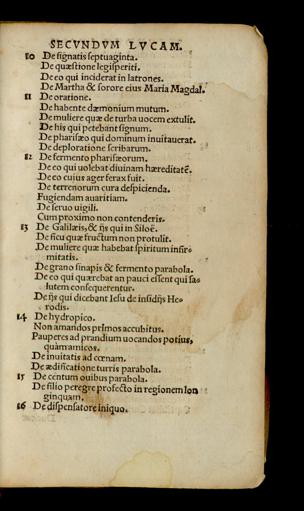 SECVNDVM LVCAM.
10 De signatis septuaginta.
De quæstione legisperiti.
De eo qui inciderat in latrones.
De Martha & sorore eius Maria Magdal.
11 De oratione.
De habente dæmonium mutum.
De muliere quæ de turba uocem extulit.
De his qui petebant signum.
De pharisæo qui dominum inuitauerat.
De deploratione scribarum.
12 De fermento pharisæorum.
De eo qui uolebat diuinam hæreditatē.
De eo cuius ager ferax fuit.
De terrenorum cura despicienda.
Fugiendam auaritiam.
De seruo uigili.
Cum proximo non contenderis.
13 De Galilæis, & ijs qui in Siloē.
De ficu quæ fructum non protulit.
De muliere quæ habebat spiritum infir-
mitatis.
De grano sinapis & fermento parabola.
De eo qui quærebat an pauci essent qui sa-
lutem consequerentur.
De ijs qui dicebant Iesu de insidijs He-
rodis.
14 De hydropico.
Non amandos primos accubitus.
Pauperes ad prandium uocandos potius,
quàm amicos.
De inuitatis ad cœnam.
De ædificatione turris parabola.
15 De centum ouibus parabola.
De filio peregre profecto in regionem lon
ginquam.
16 De dispensatore iniquo.